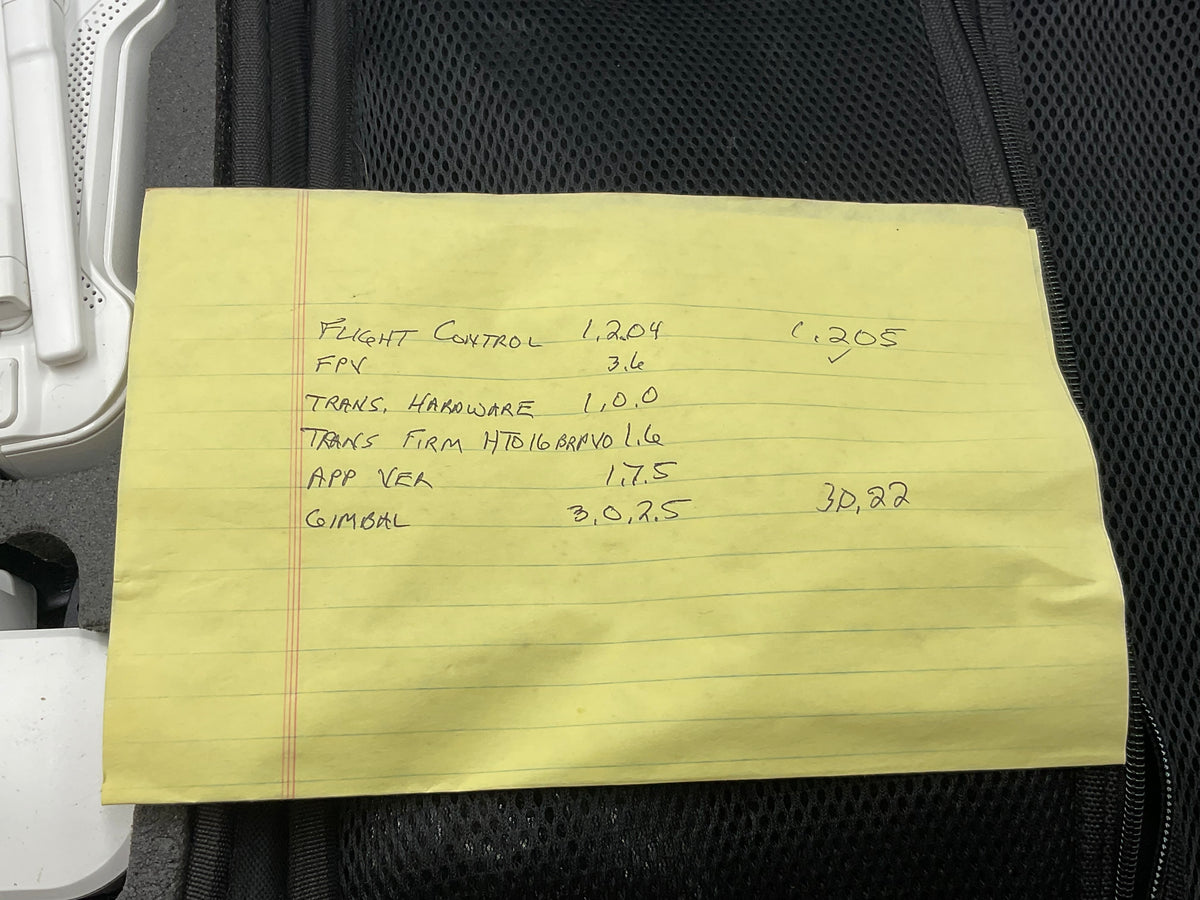 FLIGHT CONTROL 1.2.04 1.205 ✓
FPV 3.6
TRANS. HARDWARE 1.0.0
TRANS FIRM 1.6
APP VER 1.7.5
GIMBAL 3.0.2.5 30.22